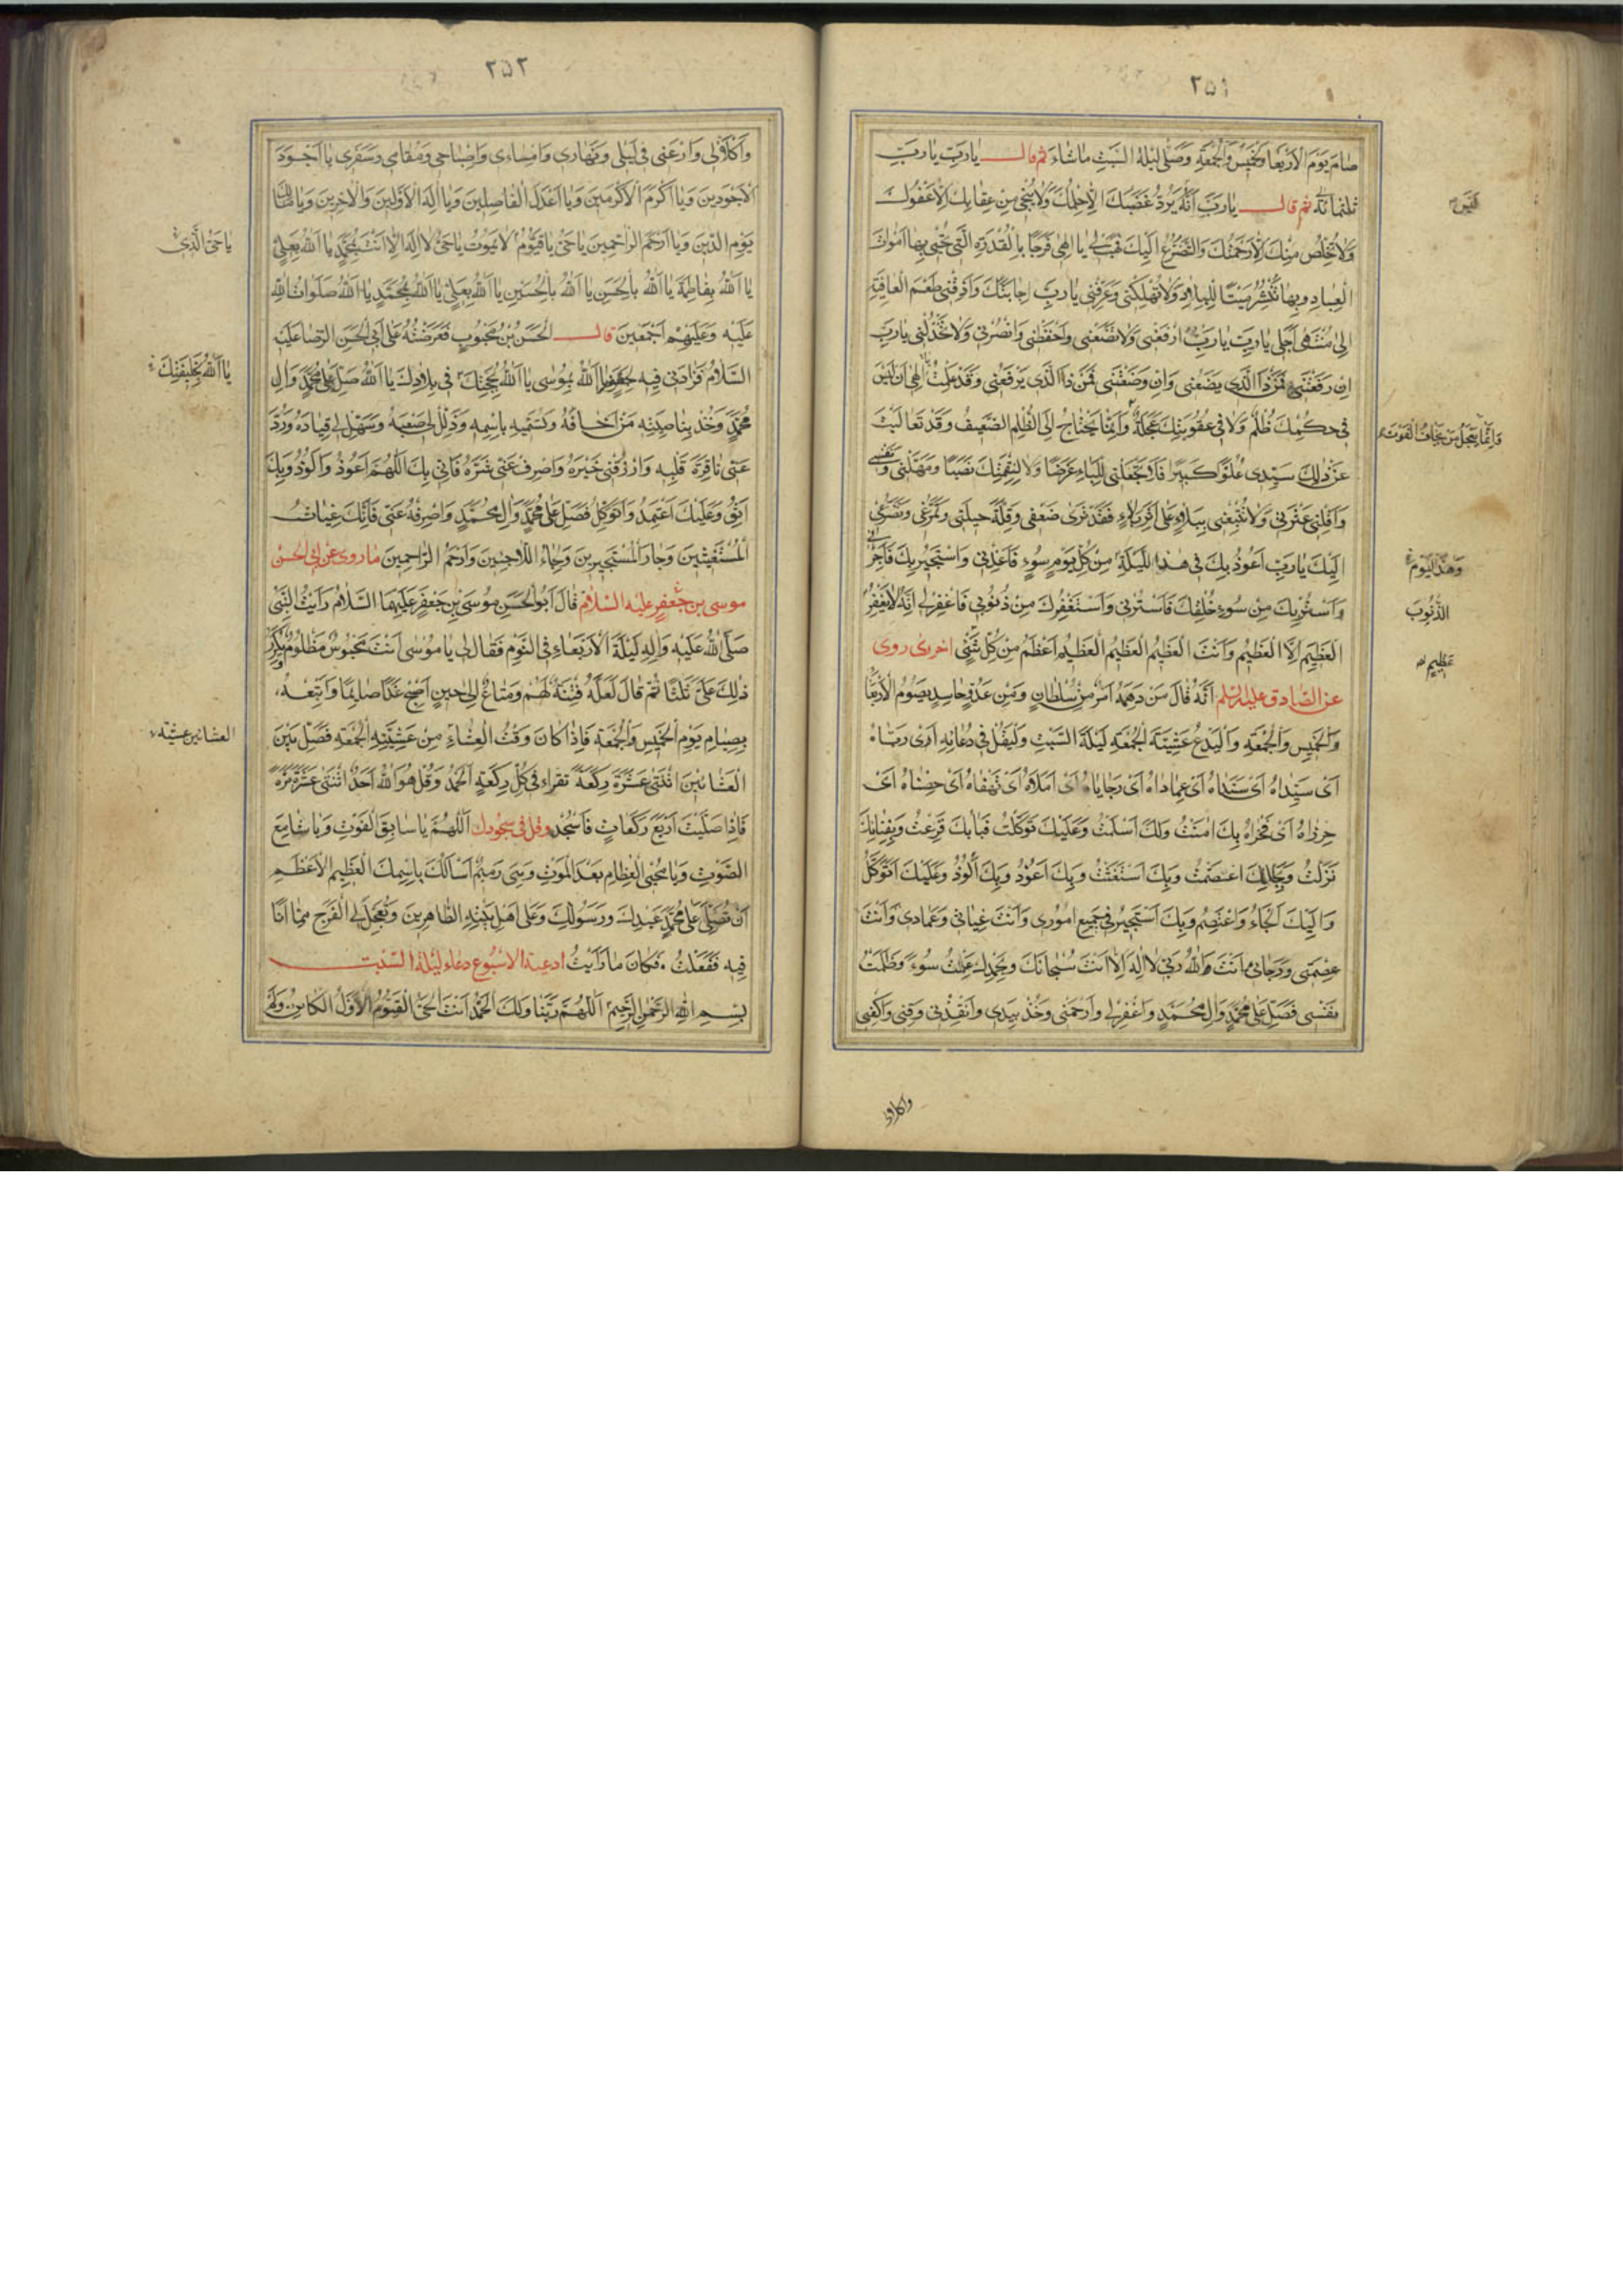 ٢٥١
صٰامَ يَوْمَ الْاَرْبَعٰا وَالْخَمِيْسِ وَالْجُمُعَةِ وَصَلّٰى لَيْلَةَ السَّبْتِ مٰا شٰاءَ ثم قال يٰارَبِّ يٰارَبِّ
ثلثمائة ثم قال يٰارَبِّ اَنَّهُ يَرُدُّ غَضَبَكَ اِلَّا حِلْمُكَ وَلَا يُنْجِى مِنْ عِقٰابِكَ اِلَّا عَفْوُكَ
وَلَا يُخَلِّصُ مِنْكَ اِلَّا رَحْمَتُكَ وَالتَّضَرُّعُ اِلَيْكَ فَهَبْ لِى يٰا اِلٰهِى فَرَجًا بِالْقُدْرَةِ الَّتِى تُحْيِى بِهٰا اَمْوٰاتَ
الْعِبٰادِ وَبِهٰا تَنْشُرُ مَيْتَ الْبِلٰادِ وَلَا تُهْلِكْنِى وَعَرِّفْنِى يٰارَبِّ اِجٰابَتَكَ وَاَذِقْنِى طَعْمَ الْعٰافِيَةِ
اِلٰى مُنْتَهٰى اَجَلِى يٰارَبِّ يٰارَبِّ ارْفَعْنِى وَلَا تَضَعْنِى وَاحْفَظْنِى وَانْصُرْنِى وَلَا تَخْذُلْنِى يٰارَبِّ
اِنْ رَفَعْتَنِى فَمَنْ ذَا الَّذِى يَضَعُنِى وَاِنْ وَضَعْتَنِى فَمَنْ ذَا الَّذِى يَرْفَعُنِى وَقَدْ عَلِمْتُ يٰا اِلٰهِى اَنْ لَيْسَ
فِى حُكْمِكَ ظُلْمٌ وَلَا فِى عُقُوبَتِكَ عَجَلَةٌ وَاِنَّمٰا يَحْتٰاجُ اِلَى الظُّلْمِ الضَّعِيفُ وَقَدْ تَعٰالَيْتَ
عَنْ ذٰلِكَ سَيِّدِى عُلُوًّا كَبِيرًا فَلَا تَجْعَلْنِى لِلْبَلٰاءِ غَرَضًا وَلَا لِنِقْمَتِكَ نَصَبًا وَمَهِّلْنِى وَنَفِّسْنِى
وَاَقِلْنِى عَثْرَتِى وَلَا تُتْبِعْنِى بِبَلٰاءٍ عَلٰى اَثَرِ بَلٰاءٍ فَقَدْ تَرٰى ضَعْفِى وَقِلَّةَ حِيلَتِى وَتَمَرُّغِى وَتَضَرُّعِى
اِلَيْكَ يٰارَبِّ اَعُوذُ بِكَ فِى هٰذِهِ اللَّيْلَةِ مِنْ كُلِّ يَوْمٍ سُوءٍ فَاَعِذْنِى وَاَسْتَجِيرُ بِكَ فَاَجِرْنِى
وَاَسْتَتِرُ بِكَ مِنْ سُوءِ خَلْقِكَ فَاسْتُرْنِى وَاَسْتَغْفِرُكَ مِنْ ذُنُوبِى فَاغْفِرْ لِى اِنَّهُ لَا يَغْفِرُ
الْعَظِيمَ اِلَّا الْعَظِيمُ وَاَنْتَ الْعَظِيمُ الْعَظِيمُ الْعَظِيمُ اَعْظَمُ مِنْ كُلِّ شَىْءٍ اخرى روى
عن الصّادق عليه السلم اَنَّهُ قٰالَ مَنْ دَهَمَهُ اَمْرٌ مِنْ سُلْطٰانٍ وَمِنْ عَدُوٍّ حٰاسِدٍ يَصُومُ الْاَرْبَعٰا
وَالْخَمِيسِ وَالْجُمُعَةِ وَالْيَدْعُ عَشِيَّةَ الْجُمُعَةِ لَيْلَةَ السَّبْتِ وَلْيَقُلْ فِى دُعٰائِهِ اَىْ رَبّٰاهُ
اَىْ سَيِّدٰاهُ اَىْ سَنَدٰاهُ اَىْ عِمٰادٰاهُ اَىْ رَجٰايٰاهُ اَىْ اَمَلٰاهُ اَىْ كَهْفٰاهُ اَىْ حِصْنٰاهُ اَىْ
حِرْزٰاهُ اَىْ فَخْرٰاهُ بِكَ اٰمَنْتُ وَلَكَ اَسْلَمْتُ وَعَلَيْكَ تَوَكَّلْتُ فَبٰابَكَ قَرَعْتُ وَبِفِنٰائِكَ
نَزَلْتُ وَبِحَبْلِكَ اعْتَصَمْتُ وَبِكَ اسْتَغَثْتُ وَبِكَ اَعُوْذُ وَبِكَ اَلُوْذُ وَعَلَيْكَ اَتَوَكَّلُ
وَاِلَيْكَ اَلْجَاءُ وَاَعْتَصِمُ وَبِكَ اَسْتَجِيْرُ فِى جَمِيْعِ اُمُوْرِى وَاَنْتَ غِيٰاثِى وَعِمٰادِى وَاَنْتَ
عِصْمَتِى وَرَجٰائِى وَاَنْتَ اللّٰهُ رَبِّى لَا اِلٰهَ اِلَّا اَنْتَ سُبْحٰانَكَ وَبِحَمْدِكَ عَمِلْتُ سُوْءً وَظَلَمْتُ
نَفْسِى فَصَلِّ عَلٰى مُحَمَّدٍ وَاٰلِ مُحَمَّدٍ وَاغْفِرْ لِى وَارْحَمْنِى وَخُذْ بِيَدِى وَاَنْقِذْنِى وَقِنِى وَاكْفِنِى
الخميس
وَاِنَّمٰا يَعْجَلُ مَنْ يَخٰافُ الْفَوْتَ
وَهٰذَا الْيَوْمِ
الذُّنُوبَ
عَظِيمٍ
٢٥٢
وَاكْلَأْنِى وَارْعَنِى فِى لَيْلِى وَنَهٰارِى وَاِمْسٰاءِى وَاِصْبٰاحِى وَمُقٰامِى وَسَفَرِى يٰا اَجْوَدَ
الْاَجْوَدِينَ وَيٰا اَكْرَمَ الْاَكْرَمِينَ وَيٰا اَعْدَلَ الْفٰاصِلِينَ وَيٰا اِلٰهَ الْاَوَّلِينَ وَالْاٰخِرِينَ وَيٰا مٰالِكَ
يَوْمِ الدِّينِ وَيٰا اَرْحَمَ الرّٰاحِمِينَ يٰا حَىُّ يٰا قَيُّوْمُ لَا يَمُوْتُ يٰا حَىُّ لَا اِلٰهَ اِلَّا اَنْتَ بِمُحَمَّدٍ يٰا اَللّٰهُ بِعَلِىٍّ
يٰا اَللّٰهُ بِفٰاطِمَةَ يٰا اَللّٰهُ بِالْحَسَنِ يٰا اَللّٰهُ بِالْحُسَيْنِ يٰا اَللّٰهُ بِعَلِىٍّ يٰا اَللّٰهُ بِمُحَمَّدٍ يٰا اَللّٰهُ صَلَوٰاتُ اللّٰهِ
عَلَيْهِ وَعَلَيْهِمْ اَجْمَعِينَ قال الْحَسَنُ بْنُ مَحْبُوبٍ فَعَرَضْتُهُ عَلٰى اَبِى الْحَسَنِ الرِّضٰا عَلَيْهِ
السَّلٰامُ فَزٰادَنِى فِيهِ بِجَعْفَرٍ يٰا اَللّٰهُ بِمُوسٰى يٰا اَللّٰهُ بِحُجَّتِكَ فِى بِلٰادِكَ يٰا اَللّٰهُ صَلِّ عَلٰى مُحَمَّدٍ وَاٰلِ
مُحَمَّدٍ وَخُذْ بِنٰاصِيَةِ مَنْ اَخٰافُهُ وَتُسَمِّيهِ بِاسْمِهِ وَذَلِّلْ لِى صَعْبَهُ وَسَهِّلْ لِى قِيٰادَهُ وَرُدَّ
عَنِّى نٰافِرَةَ قَلْبِهِ وَارْزُقْنِى خَيْرَهُ وَاصْرِفْ عَنِّى شَرَّهُ فَاِنِّى بِكَ اَللّٰهُمَّ اَعُوذُ وَاَلُوذُ وَبِكَ
اَثِقُ وَعَلَيْكَ اَعْتَمِدُ وَاَتَوَكَّلُ فَصَلِّ عَلٰى مُحَمَّدٍ وَاٰلِ مُحَمَّدٍ وَاصْرِفْهُ عَنِّى فَاِنَّكَ غِيٰاثُ
الْمُسْتَغِيثِينَ وَجٰارُ الْمُسْتَجِيرِينَ وَلَجٰاءُ اللّٰاجِئِينَ وَاَرْحَمُ الرّٰاحِمِينَ ما روى عن ابى الحسن
موسى بن جعفر عليه السلام قٰالَ اَبُو الْحَسَنِ مُوسَى بْنِ جَعْفَرٍ عَلَيْهِمَا السَّلٰامُ رَاَيْتُ النَّبِىَّ
صَلَّى اللّٰهُ عَلَيْهِ وَاٰلِهِ لَيْلَةَ الْاَرْبَعٰاءِ فِى النَّوْمِ فَقٰالَ لِى يٰا مُوسٰى اَنْتَ مَحْبُوسٌ مَظْلُومٌ يُكَرِّرُ
ذٰلِكَ عَلَىَّ ثَلٰثًا ثُمَّ قٰالَ لَعَلَّهُ فِتْنَةٌ لَهُمْ وَمَتٰاعٌ اِلٰى حِينٍ اَصْبِحْ غَدًا صٰائِمًا وَاَتْبِعْهُ
بِصِيٰامِ يَوْمِ الْخَمِيْسِ وَالْجُمُعَةِ فَاِذٰا كٰانَ وَقْتُ الْعِشٰاءِ مِنْ عَشِيَّةِ الْجُمُعَةِ فَصَلِّ بَيْنَ
الْعِشٰائَيْنِ اثْنَتَىْ عَشْرَةَ رَكْعَةً تقراء فِى كُلِّ رَكْعَةٍ اَلْحَمْدُ وَقُلْ هُوَ اللّٰهُ اَحَدٌ اثْنَتَىْ عَشْرَةَ مَرَّةً
فَاِذٰا صَلَّيْتَ اَرْبَعَ رَكَعٰاتٍ فَاسْجُدْ وقل فى سجودك اَللّٰهُمَّ يٰا سٰابِقَ الْفَوْتِ وَيٰا سٰامِعَ
الصَّوْتِ وَيٰا مُحْيِىَ الْعِظٰامِ بَعْدَ الْمَوْتِ وَهِىَ رَمِيمٌ اَسْاَلُكَ بِاسْمِكَ الْعَظِيمِ الْاَعْظَمِ
اَنْ تُصَلِّىَ عَلٰى مُحَمَّدٍ عَبْدِكَ وَرَسُولِكَ وَعَلٰى اَهْلِ بَيْتِهِ الطّٰاهِرِينَ وَتُعَجِّلَ لِى الْفَرَجَ مِمّٰا اَنَا
فِيهِ فَفَعَلْتُ فَكٰانَ مٰا رَاَيْتُ ادعية الاسبوع دعاء ليلة السّبت
بِسْمِ اللّٰهِ الرَّحْمٰنِ الرَّحِيْمِ اَللّٰهُمَّ رَبَّنٰا وَلَكَ الْحَمْدُ اَنْتَ الْحَىُّ الْقَيُّوْمُ الْاَوَّلُ الْكٰائِنُ وَلَمْ
يٰا حَىُّ الَّذِى
يٰا اَللّٰهُ بِخَلِيفَتِكَ
العشائين عشية